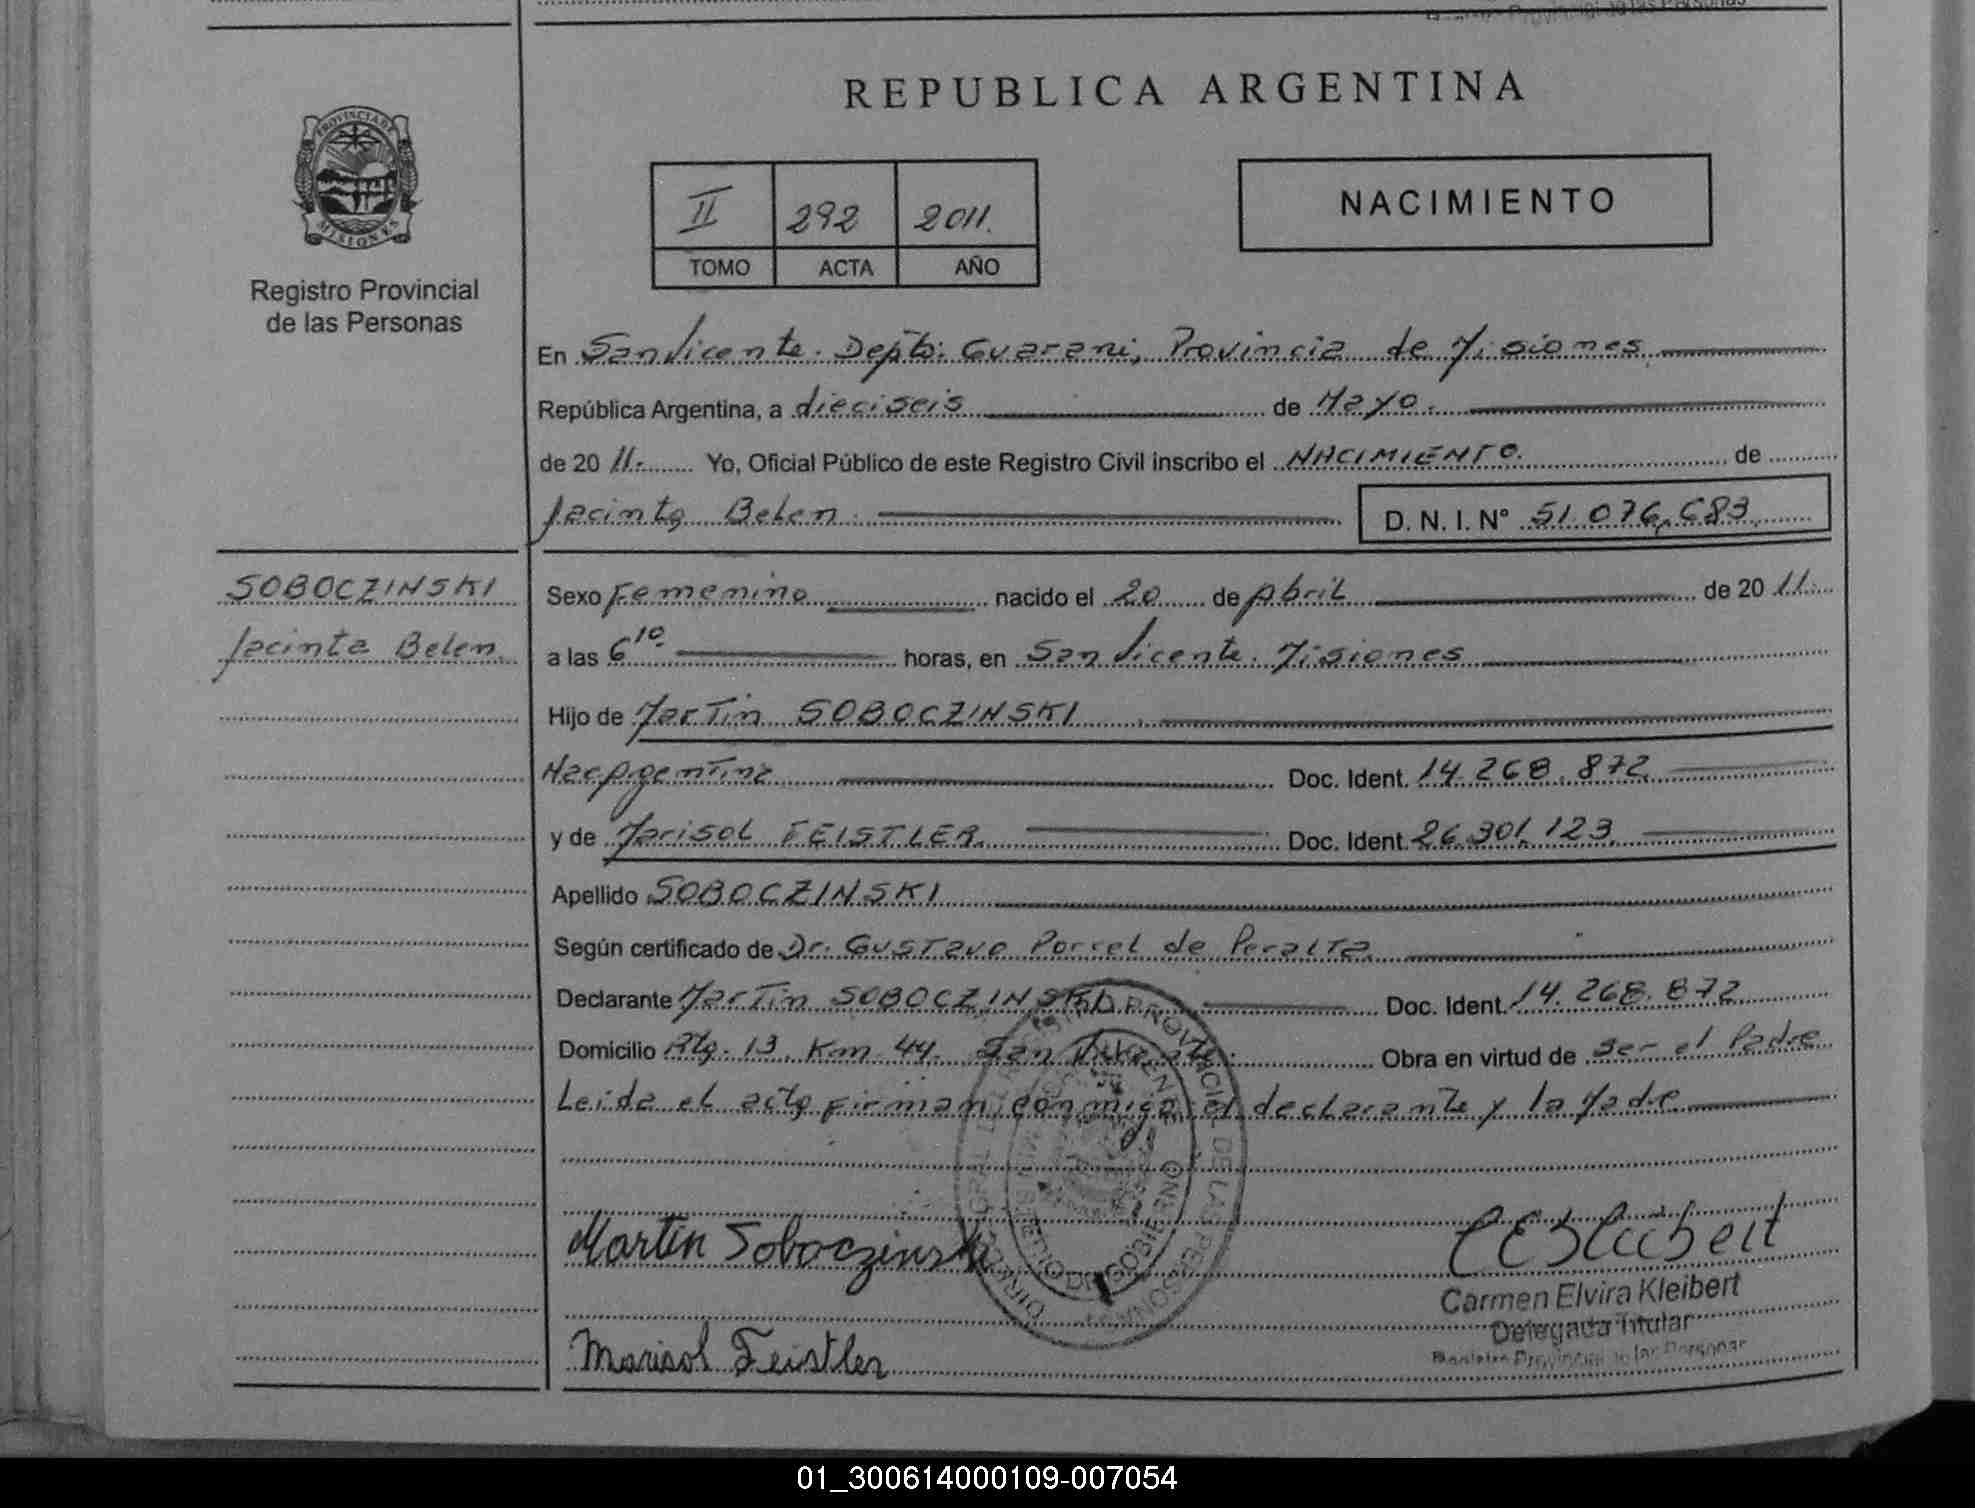 REPUBLICA ARGENTINA
PROVINCIA DE
MISIONES
Registro Provincial
de las Personas
II 292 2011.
TOMO ACTA AÑO
NACIMIENTO
En San Vicente. Depto: Guarani, Provincia de Misiones
República Argentina, a dieciseis de Mayo.
de 20 11. Yo, Oficial Público de este Registro Civil inscribo el NACIMIENTO. de
Jacinta Belen. D. N. I. Nº 51.076.683
SOBOCZINSKI
Jacinta Belen
Sexo Femenino nacido el 20 de Abril de 20 11.
a las 6 10. horas, en San Vicente. Misiones
Hijo de Martin SOBOCZINSKI
Doc. Ident. 14.268.872
y de Marisol FEISTLER. Doc. Ident. 26.301.123
Apellido SOBOCZINSKI
Según certificado de Dr. Gustavo Porcel de Peralta
Declarante Martin SOBOCZINSKI Doc. Ident. 14.268.872
Domicilio Rta. 13. Km 44. San Vicente. Obra en virtud de ser el Padre
Leida el acta firman conmigo el declarante y la Madre
Martin Soboczinski
Carmen Elvira Kleibert
Delegada Titular
Registro Provincial de las Personas
Marisol Feistler
01_300614000109-007054